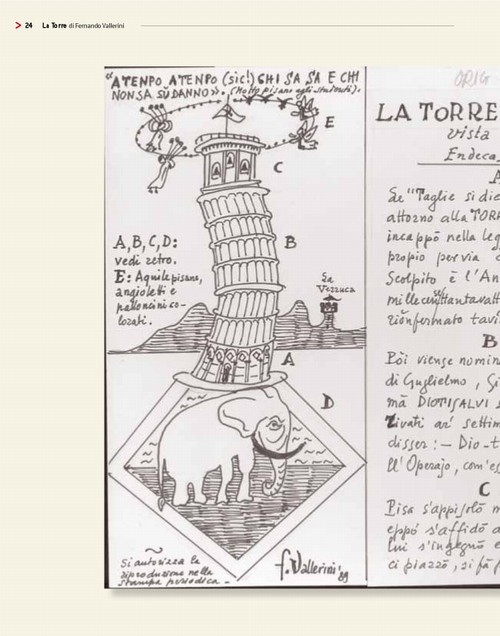 24 La Torre di Fernando Vallerini
"ATENPO ATENPO (sic!) CHI SA SA E CHI
NON SA SŬ DANNO».
(Motto pisano agli studenti).
E
C
B
A,B,C,D:
vedi retro.
E: Aquile pisane,
angioletti e
palloncini co-
lorati.
La
Verruca
A
D
Si autorizza la
riproduzione nella
stampa periodica.-
f. Vallerini '89
ORIG
LA TORRE
vista
Endeca
A
Se "Taglie si dic
attorno alla TORR
incappò nella leg
propio per via
Scolpito è l'An
rionfermato
B
Pòi vienge nomin
di Guglielmo,
mà DIOTISALVI s
disser:- Dio-t
ll'Operajo, com'es
C
Pisa s'appisolò m
eppó s'affidò a
lui s'ingegnò e
ci piazzò, si fà